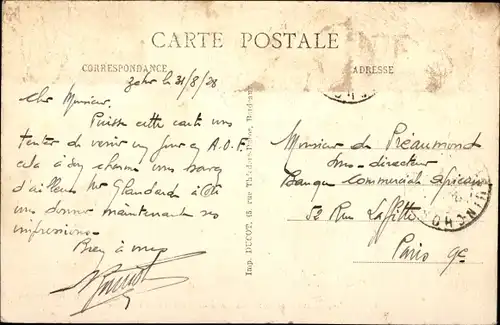 CARTE POSTALE
CORRESPONDANCE
ADRESSE
le 31/8/28
Cher Monsieur,
Puisse cette carte vous
tenter de venir un jour en A.O.F.
cela a son charme vous savez
d'ailleurs Mr
vous donner maintenant ses
impressions.
Bien à vous
Imp. DUCOT, 65, rue
Monsieur de Préaumond
sous-directeur
Banque Commerciale Africaine
52 Rue Laffitte
Paris 9e